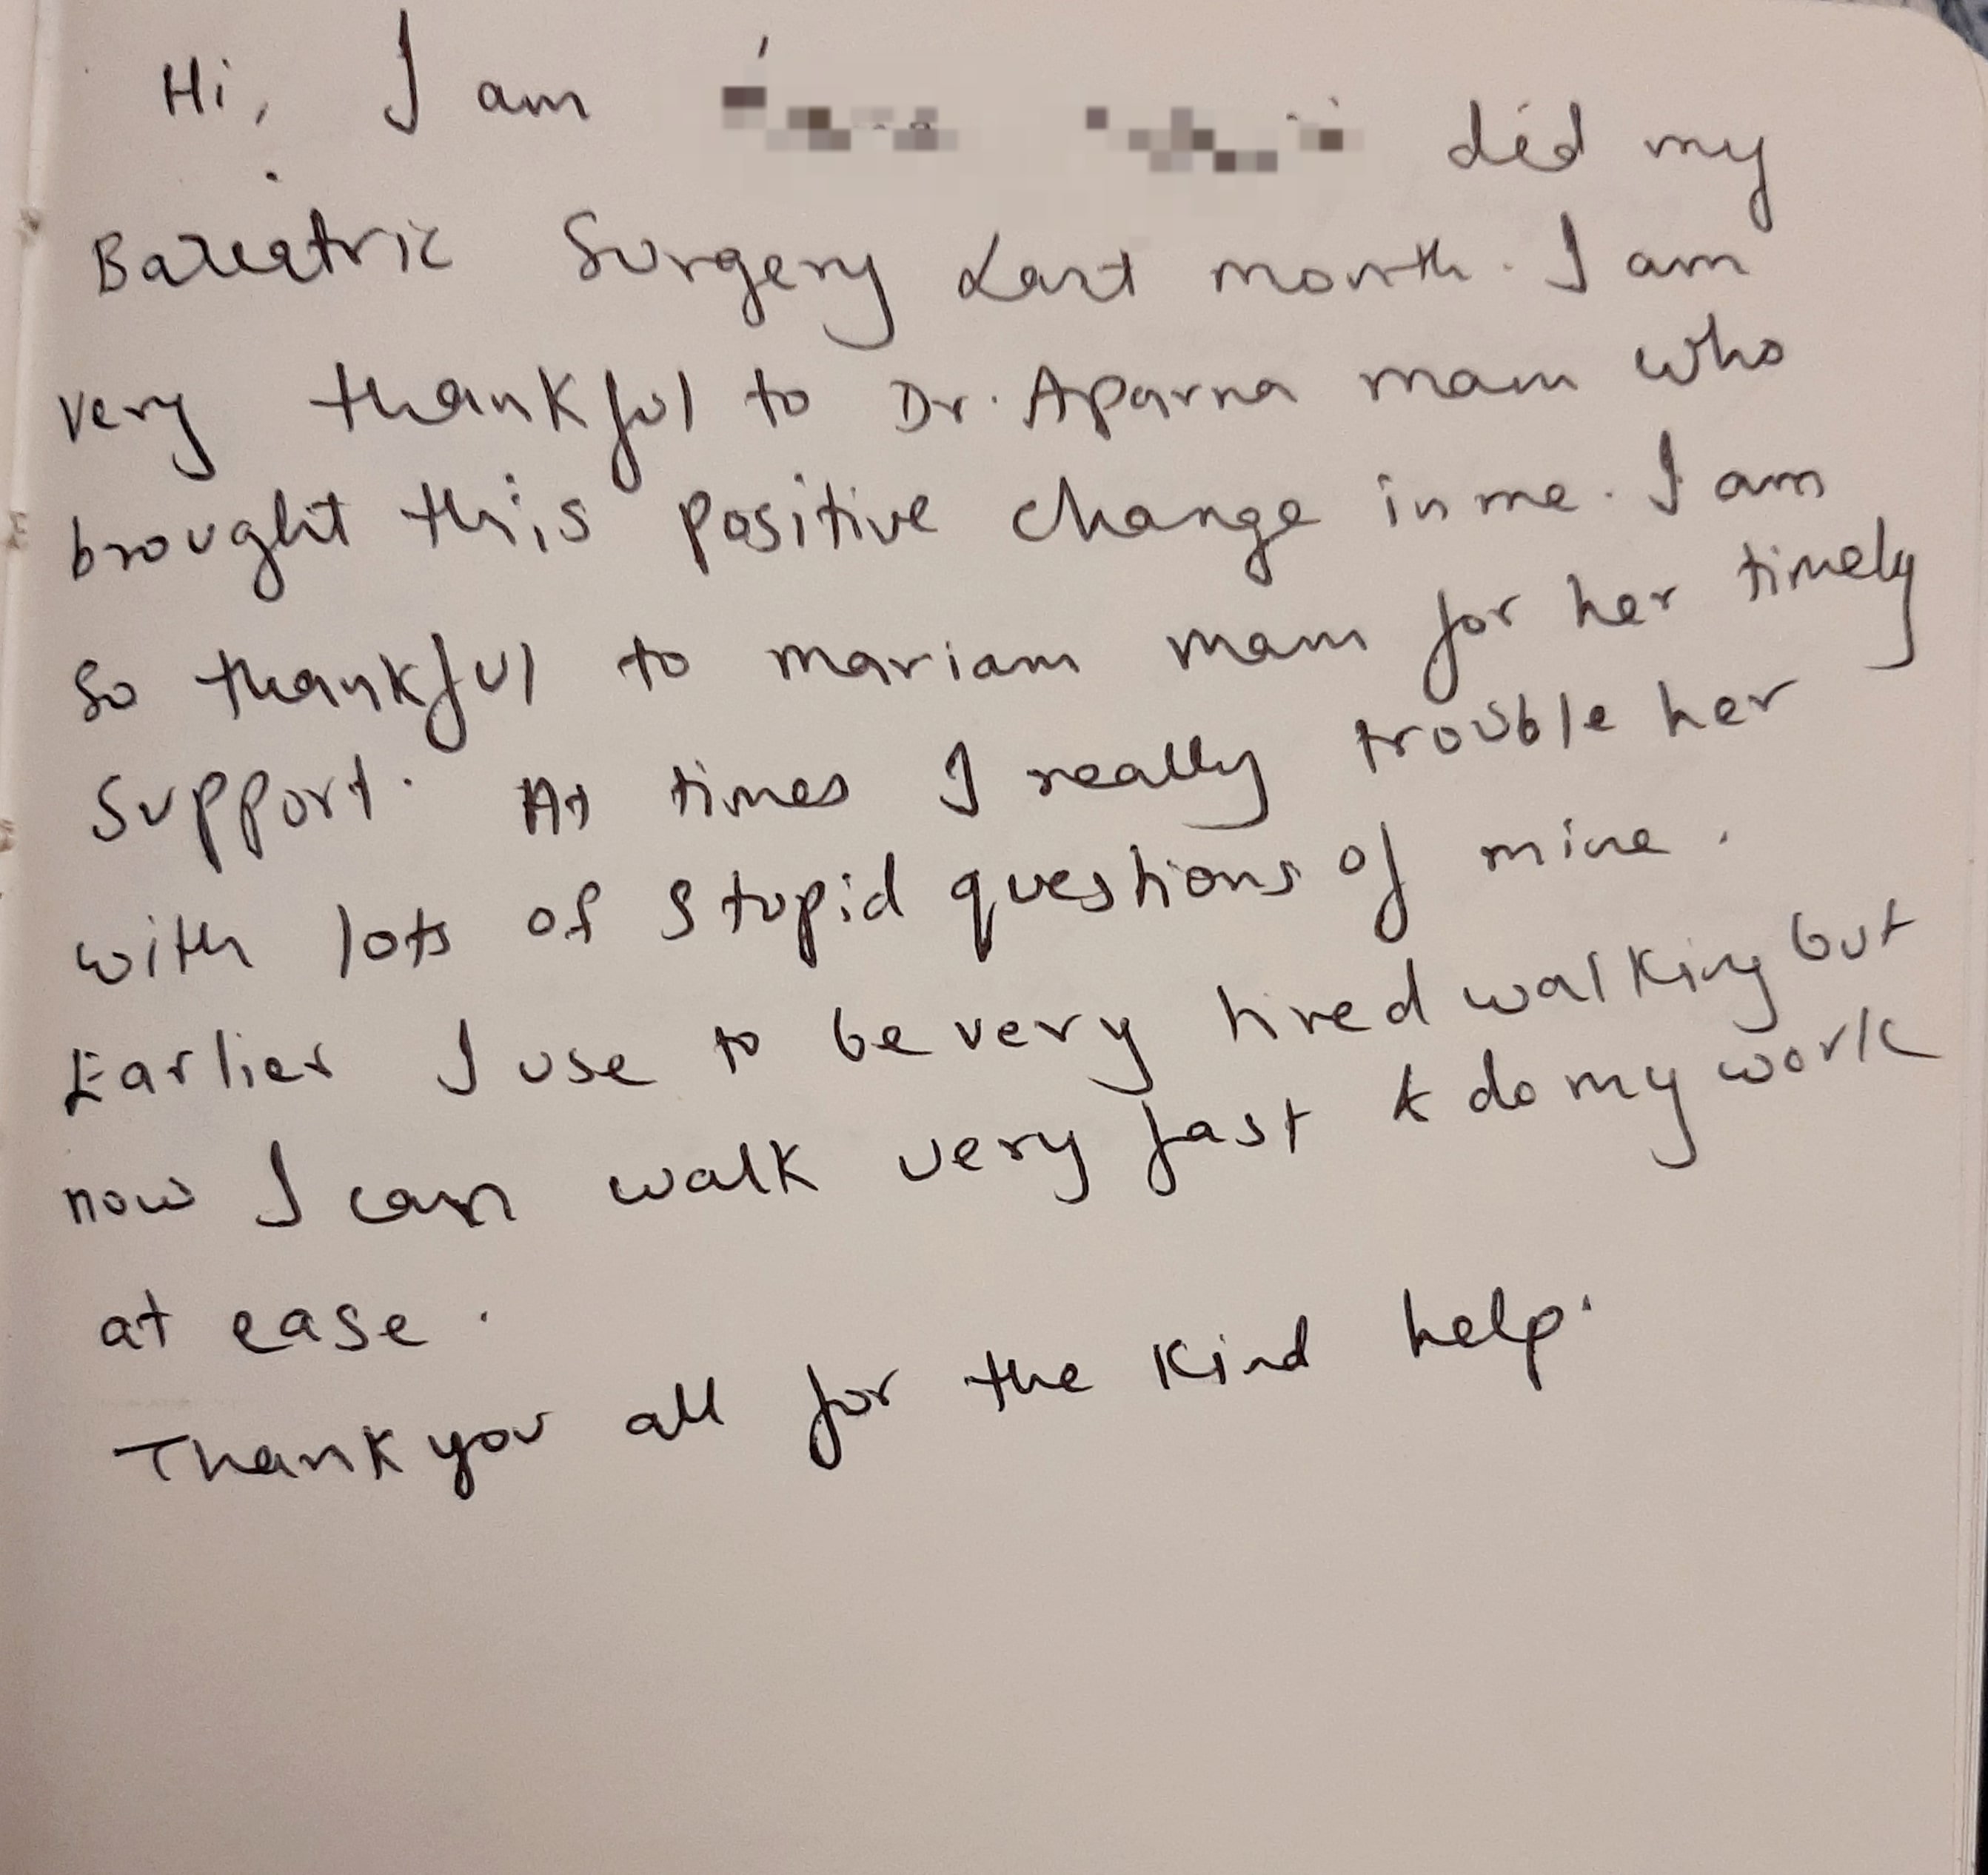 Hi, I am did my
Bariatric Surgery Last month. I am
very thankful to Dr. Aparna mam who
brought this positive change in me. I am
so thankful to mariam mam for her timely
support. At times I really trouble her
with lots of stupid questions of mine.
Earlier I use to be very tired walking but
now I can walk very fast & do my work
at ease.
Thank you all for the kind help.